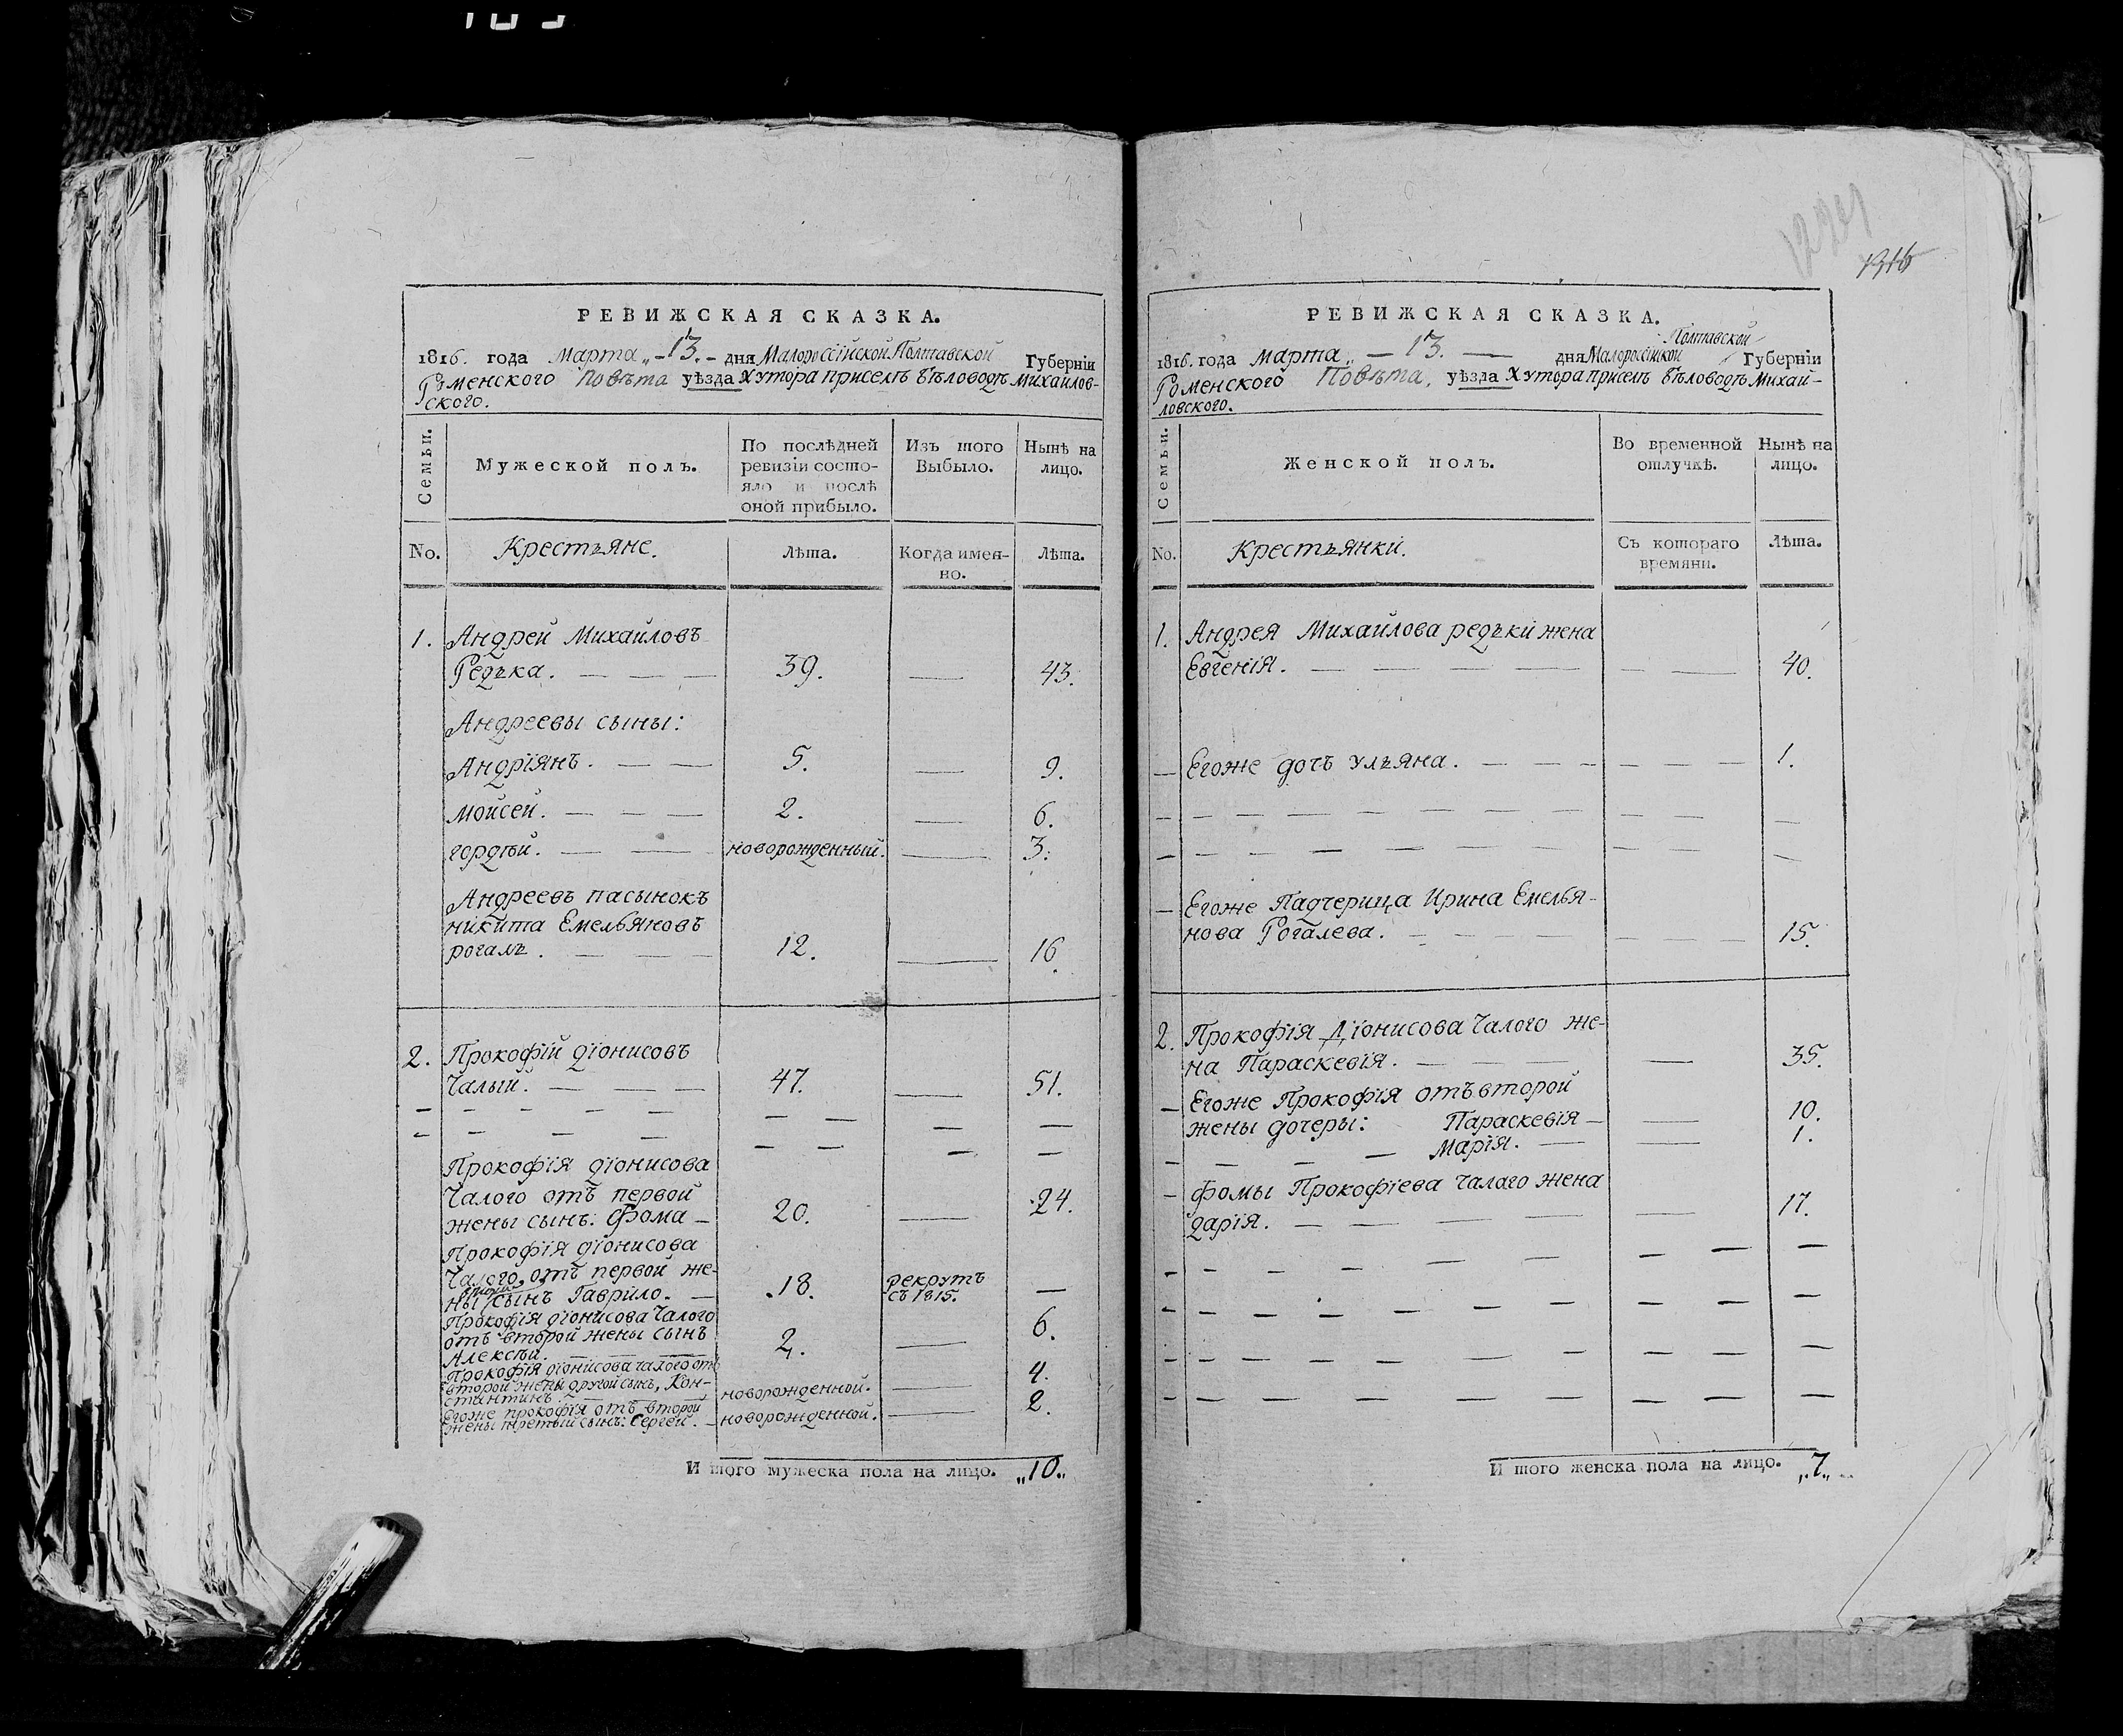 РЕВИЖСКАЯ СКАЗКА.
1816. года марта „-13.- дня Малороссійской Полтавской Губерніи
Роменского Повѣта уѣзда Хутора приселѣ бѣловодѣ михайлов-
ского.
Семьи.
Мужеской полъ.
По послѣдней
ревизіи состо-
яло и послѣ
оной прибыло.
Изъ того
Выбыло.
Нынѣ на
лицо.
No.
Крестьяне.
Лѣта.
Когда имен-
но.
Лѣта.
1. Андрей Михайловъ
Редька. — — — 39. — 43.
Андреевы сыны:
Андріянъ. — — 5. — 9.
мойсей. — — — 2. — 6.
гордѣй. — — новорожденный. — 3.
Андреевъ пасынокъ
никита Емельяновъ
рогаль. — — — 12. — 16.
2. Прокофій діонисовъ
Чалый. — — — 47. — 51.
Прокофія діонисова
Чалого отъ первой
жены сынъ: Фома — 20. — 24.
Прокофія діонисова
Чалого, отъ первой же-
ны другой сынъ Гаврило. — 18. рекрутъ
съ 1815. —
Прокофія діонисова Чалого
отъ второй жены сынъ
Алексѣй. — — — 2. — 6.
Прокофія діонисова чалого отъ
второй жены другой сынъ, Кон-
стантинъ. — новорожденной. — 4.
Егоже прокофія отъ второй
жены третьій сынъ: Сергей. — новорожденной. — 2.
И того мужеска пола на лицо. „10„
1316
РЕВИЖСКАЯ СКАЗКА.
Полтавской
1816. года марта„ — 13. — дня Малороссійской Губерніи
Роменского Повѣта, уѣзда Хутора приселѣ бѣловодѣ Михай-
ловского.
Семьи.
Женской полъ.
Во временной
отлучкѣ.
Нынѣ на
лицо.
No.
Крестьянки.
Съ котораго
времяни.
Лѣта.
1. Андрея Михайлова редьки жена
Евгенія. — — — — — — 40.
— Егоже дочь ульяна. — — — — — — 1.
— Егоже Падчерица Ирина Емелья-
нова Рогалева. — — — — — — — 15.
2. Прокофія Діонисова Чалого же-
на Параскевія. — — — — 35.
— Егоже Прокофія отъ второй
жены дочеры: Параскевія — — 10.
— — — — Марія. — — 1.
— Фомы Прокофіева Чалаго жена
дарія. — — — — — 17.
И того женска пола на лицо. „7„